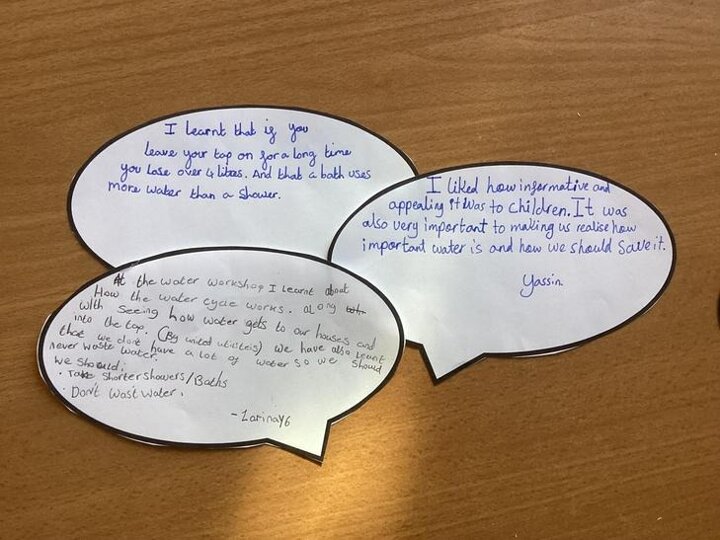 I learnt that if you
leave your tap on for a long time
you lose over 4 litres. And that a bath uses
more water than a shower.
I liked how informative and
appealing it was to children. It was
also very important to making us realise how
important water is and how we should save it.
Yassin.
At the water workshop I learnt about
How the water cycle works. along
with seeing how water gets to our houses and
into the tap. (By united utilities) we have also learnt
that we dont have a lot of water so we should
never waste water.
we should:
· Take shorter showers/Baths
· Don't wast water.
- Zarina Y6